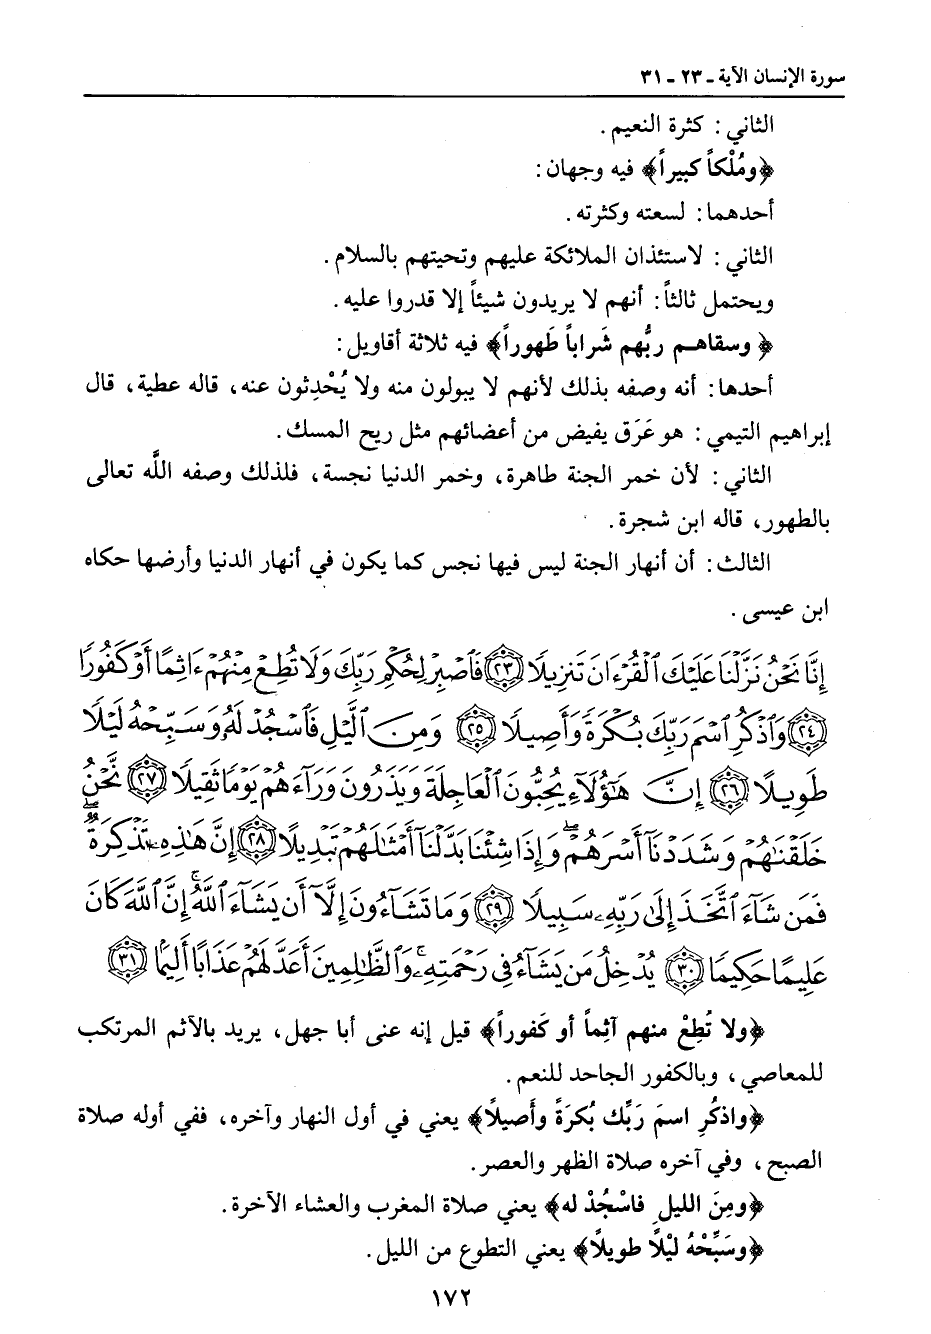 سورة الإنسان الآية ـ ٢٣ ـ ٣١
الثاني : كثرة النعيم .
﴿ومُلْكاً كبيراً﴾ فيه وجهان :
أحدهما : لسعته وكثرته .
الثاني : لاستئذان الملائكة عليهم وتحيتهم بالسلام .
ويحتمل ثالثاً : أنهم لا يريدون شيئاً إلا قدروا عليه .
﴿ وسقاهم ربُّهم شَراباً طَهوراً﴾ فيه ثلاثة أقاويل :
أحدها : أنه وصفه بذلك لأنهم لا يبولون منه ولا يُحْدِثون عنه ، قاله عطية ، قال
إبراهيم التيمي : هو عَرَق يفيض من أعضائهم مثل ريح المسك .
الثاني : لأن خمر الجنة طاهرة ، وخمر الدنيا نجسة ، فلذلك وصفه اللَّه تعالى
بالطهور ، قاله ابن شجرة .
الثالث : أن أنهار الجنة ليس فيها نجس كما يكون في أنهار الدنيا وأرضها حكاه
ابن عيسى .
إِنَّا نَحْنُ نَزَّلْنَا عَلَيْكَ ٱلْقُرْءَانَ تَنزِيلًا ٢٣ فَٱصْبِرْ لِحُكْمِ رَبِّكَ وَلَا تُطِعْ مِنْهُمْ ءَاثِمًا أَوْ كَفُورًا
٢٤ وَٱذْكُرِ ٱسْمَ رَبِّكَ بُكْرَةً وَأَصِيلًا ٢٥ وَمِنَ ٱلَّيْلِ فَٱسْجُدْ لَهُۥ وَسَبِّحْهُ لَيْلًا
طَوِيلًا ٢٦ إِنَّ هَٰٓؤُلَآءِ يُحِبُّونَ ٱلْعَاجِلَةَ وَيَذَرُونَ وَرَآءَهُمْ يَوْمًا ثَقِيلًا ٢٧ نَّحْنُ
خَلَقْنَٰهُمْ وَشَدَدْنَآ أَسْرَهُمْ ۖ وَإِذَا شِئْنَا بَدَّلْنَآ أَمْثَٰلَهُمْ تَبْدِيلًا ٢٨ إِنَّ هَٰذِهِۦ تَذْكِرَةٌ ۖ
فَمَن شَآءَ ٱتَّخَذَ إِلَىٰ رَبِّهِۦ سَبِيلًا ٢٩ وَمَا تَشَآءُونَ إِلَّآ أَن يَشَآءَ ٱللَّهُ ۚ إِنَّ ٱللَّهَ كَانَ
عَلِيمًا حَكِيمًا ٣٠ يُدْخِلُ مَن يَشَآءُ فِى رَحْمَتِهِۦ ۚ وَٱلظَّٰلِمِينَ أَعَدَّ لَهُمْ عَذَابًا أَلِيمًۢا ٣١
﴿ولا تُطِعْ منهم آثِماً أو كَفوراً﴾ قيل إنه عنى أبا جهل ، يريد بالآثم المرتكب
للمعاصي ، وبالكفور الجاحد للنعم .
﴿واذكُرِ اسمَ رَبِّك بُكرَةً وأصيلاً﴾ يعني في أول النهار وآخره ، ففي أوله صلاة
الصبح ، وفي آخره صلاة الظهر والعصر .
﴿ومِنَ الليلِ فاسْجُدْ له﴾ يعني صلاة المغرب والعشاء الآخرة .
﴿وسَبِّحْهُ لَيْلاً طويلاً﴾ يعني التطوع من الليل .
١٧٢